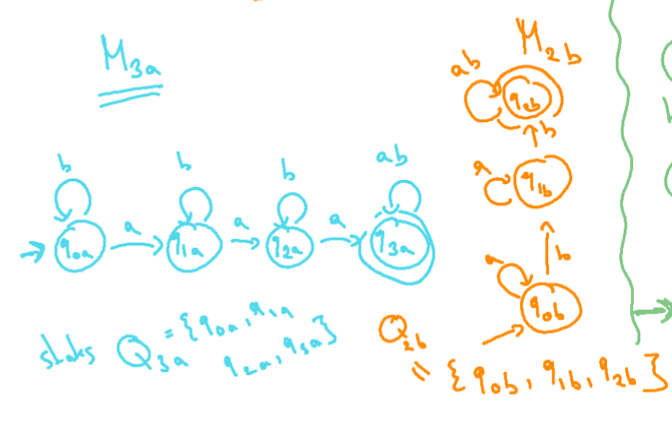 M3a
b b b ab
q0a a q1a a q2a a q3a
states Q3a = {q0a, q1a
q2a, q3a}
M2b
ab
q2b
b
a q1b
b
a
q0b
Q2b
= {q0b, q1b, q2b}
b